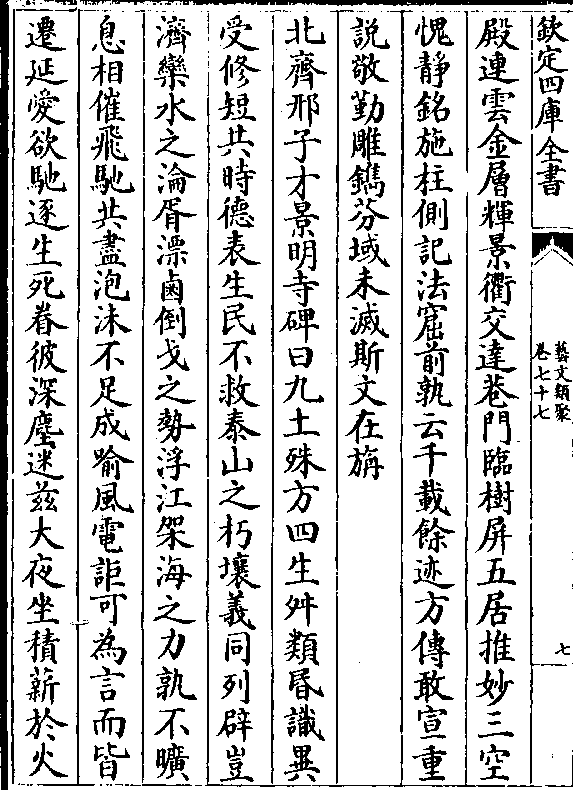 欽定四庫全書
藝文類聚
卷七十七
七
殿連雲金層輝景衢交達巷門臨樹屏五居推妙三空
愧靜銘施柱側記法窟前孰云千載餘迹方傳敢宣重
説敬勤雕鐫芬域未滅斯文在旃
北齊邢子才景明寺碑曰九土殊方四生舛類昬識異
受修短共時德表生民不救泰山之朽壤義同列辟豈
濟欒水之淪胥漂鹵倒戈之勢浮江架海之力孰不曠
息相催飛馳共盡泡沫不足成喻風電詎可為言而皆
遷延愛欲馳逐生死眷彼深塵迷兹大夜坐積薪於火